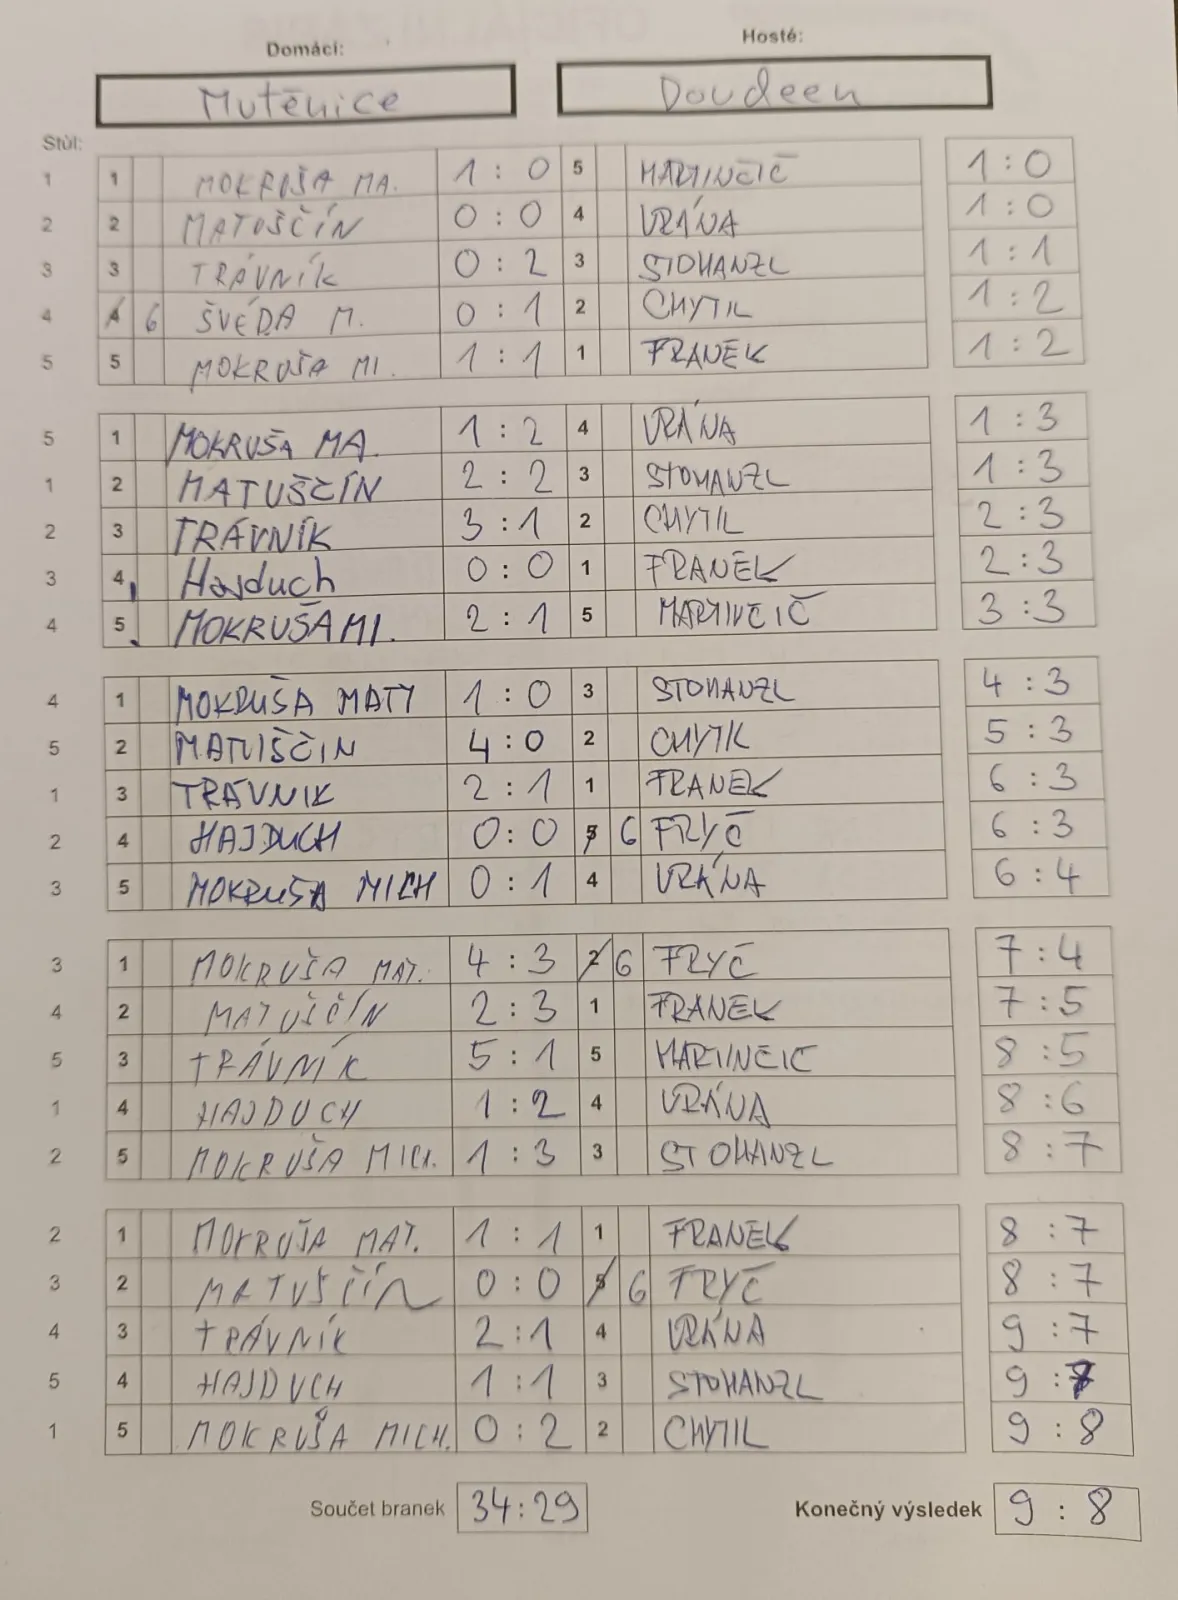 Domácí: Hosté:
Mutěnice Doudeen
Stůl:
1 1 MOKRUŠA MA. 1 : 0 5 MARTINČIČ 1 : 0
2 2 MATUŠČÍN 0 : 0 4 VRÁNA 1 : 0
3 3 TRÁVNÍK 0 : 2 3 STOHANZL 1 : 1
4 4 6 ŠVÉDA M. 0 : 1 2 CHYTIL 1 : 2
5 5 MOKRUŠA MI. 1 : 1 1 FRANĚK 1 : 2
5 1 MOKRUŠA MA. 1 : 2 4 VRÁNA 1 : 3
1 2 MATUŠČÍN 2 : 2 3 STOHANZL 1 : 3
2 3 TRÁVNÍK 3 : 1 2 CHYTIL 2 : 3
3 4 Hajduch 0 : 0 1 FRANĚK 2 : 3
4 5 MOKRUŠA MI. 2 : 1 5 MARTINČIČ 3 : 3
4 1 MOKRUŠA MATY 1 : 0 3 STOHANZL 4 : 3
5 2 MATUŠČIN 4 : 0 2 CHYTIL 5 : 3
1 3 TRÁVNIK 2 : 1 1 FRANEK 6 : 3
2 4 HAJDUCH 0 : 0 5 6 FRYČ 6 : 3
3 5 MOKRUŠA MICH 0 : 1 4 VRÁNA 6 : 4
3 1 MOKRUŠA MAT. 4 : 3 2 6 FRYČ 7 : 4
4 2 MATUŠČÍN 2 : 3 1 FRANEK 7 : 5
5 3 TRÁVNÍK 5 : 1 5 MARTINČIČ 8 : 5
1 4 HAJDUCH 1 : 2 4 VRÁNA 8 : 6
2 5 MOKRUŠA MICH. 1 : 3 3 STOHANZL 8 : 7
2 1 MOKRUŠA MAT. 1 : 1 1 FRANEK 8 : 7
3 2 MATUŠČÍN 0 : 0 5 6 FRYČ 8 : 7
4 3 TRÁVNÍK 2 : 1 4 VRÁNA 9 : 7
5 4 HAJDUCH 1 : 1 3 STOHANZL 9 : 7
1 5 MOKRUŠA MICH. 0 : 2 2 CHYTIL 9 : 8
Součet branek 34 : 29 Konečný výsledek 9 : 8